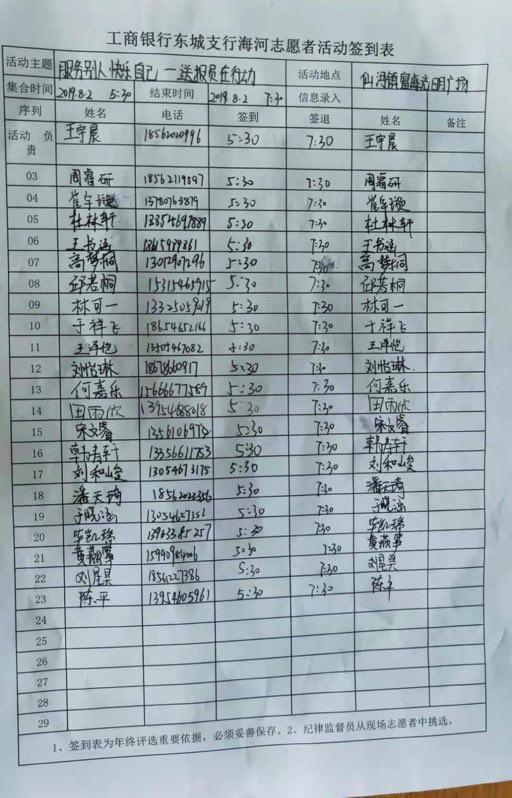 工商银行东城支行海河志愿者活动签到表
活动主题 服务别人快乐自己—送报员在行动 活动地点 仙河镇富海光明广场
集合时间 2019.8.2 5:30 结束时间 2019.8.2 7:30 信息录入
序列 姓名 电话 签到 签退 姓名 备注
活动负责 王宇晨 18562020996 5:30 7:30 王宇晨
03 周睿研 5:30 7:30 周睿研
04 5:30 7:30
05 杜林轩 5:30 7:30 杜林轩
06 王书涵 5:30 7:30 王书涵
07 高梦桐 13012907296 5:30 7:30 高梦桐
08 邱若桐 15315465915 5:30 7:30 邱若桐
09 林可一 5:30 7:30 林可一
10 于祥飞 18654652166 5:30 7:30 于祥飞
11 5:30 7:30
12 刘怡琳 5:30 7:30 刘怡琳
13 何嘉乐 5:30 7:30 何嘉乐
14 田雨欣 5:30 7:30 田雨欣
15 宋文睿 5:30 7:30 宋文睿
16 5:30 7:30
17 刘和峻 13054673175 5:30 7:30 刘和峻
18 潘天琦 5:30 7:30 潘天琦
19 于晓涵 5:30 7:30 于晓涵
20 5:30 7:30
21 5:30 7:30
22 刘星昊 18561227386 5:30 7:30 刘星昊
23 陈平 13954605961 5:30 7:30 陈平
24
25
26
27
28
29
1、签到表为年终评选重要依据，必须妥善保存。2、纪律监督员从现场志愿者中挑选。